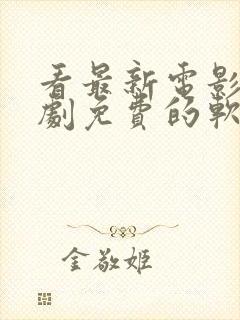 看最新电影
劇免費的軟
金敬姬